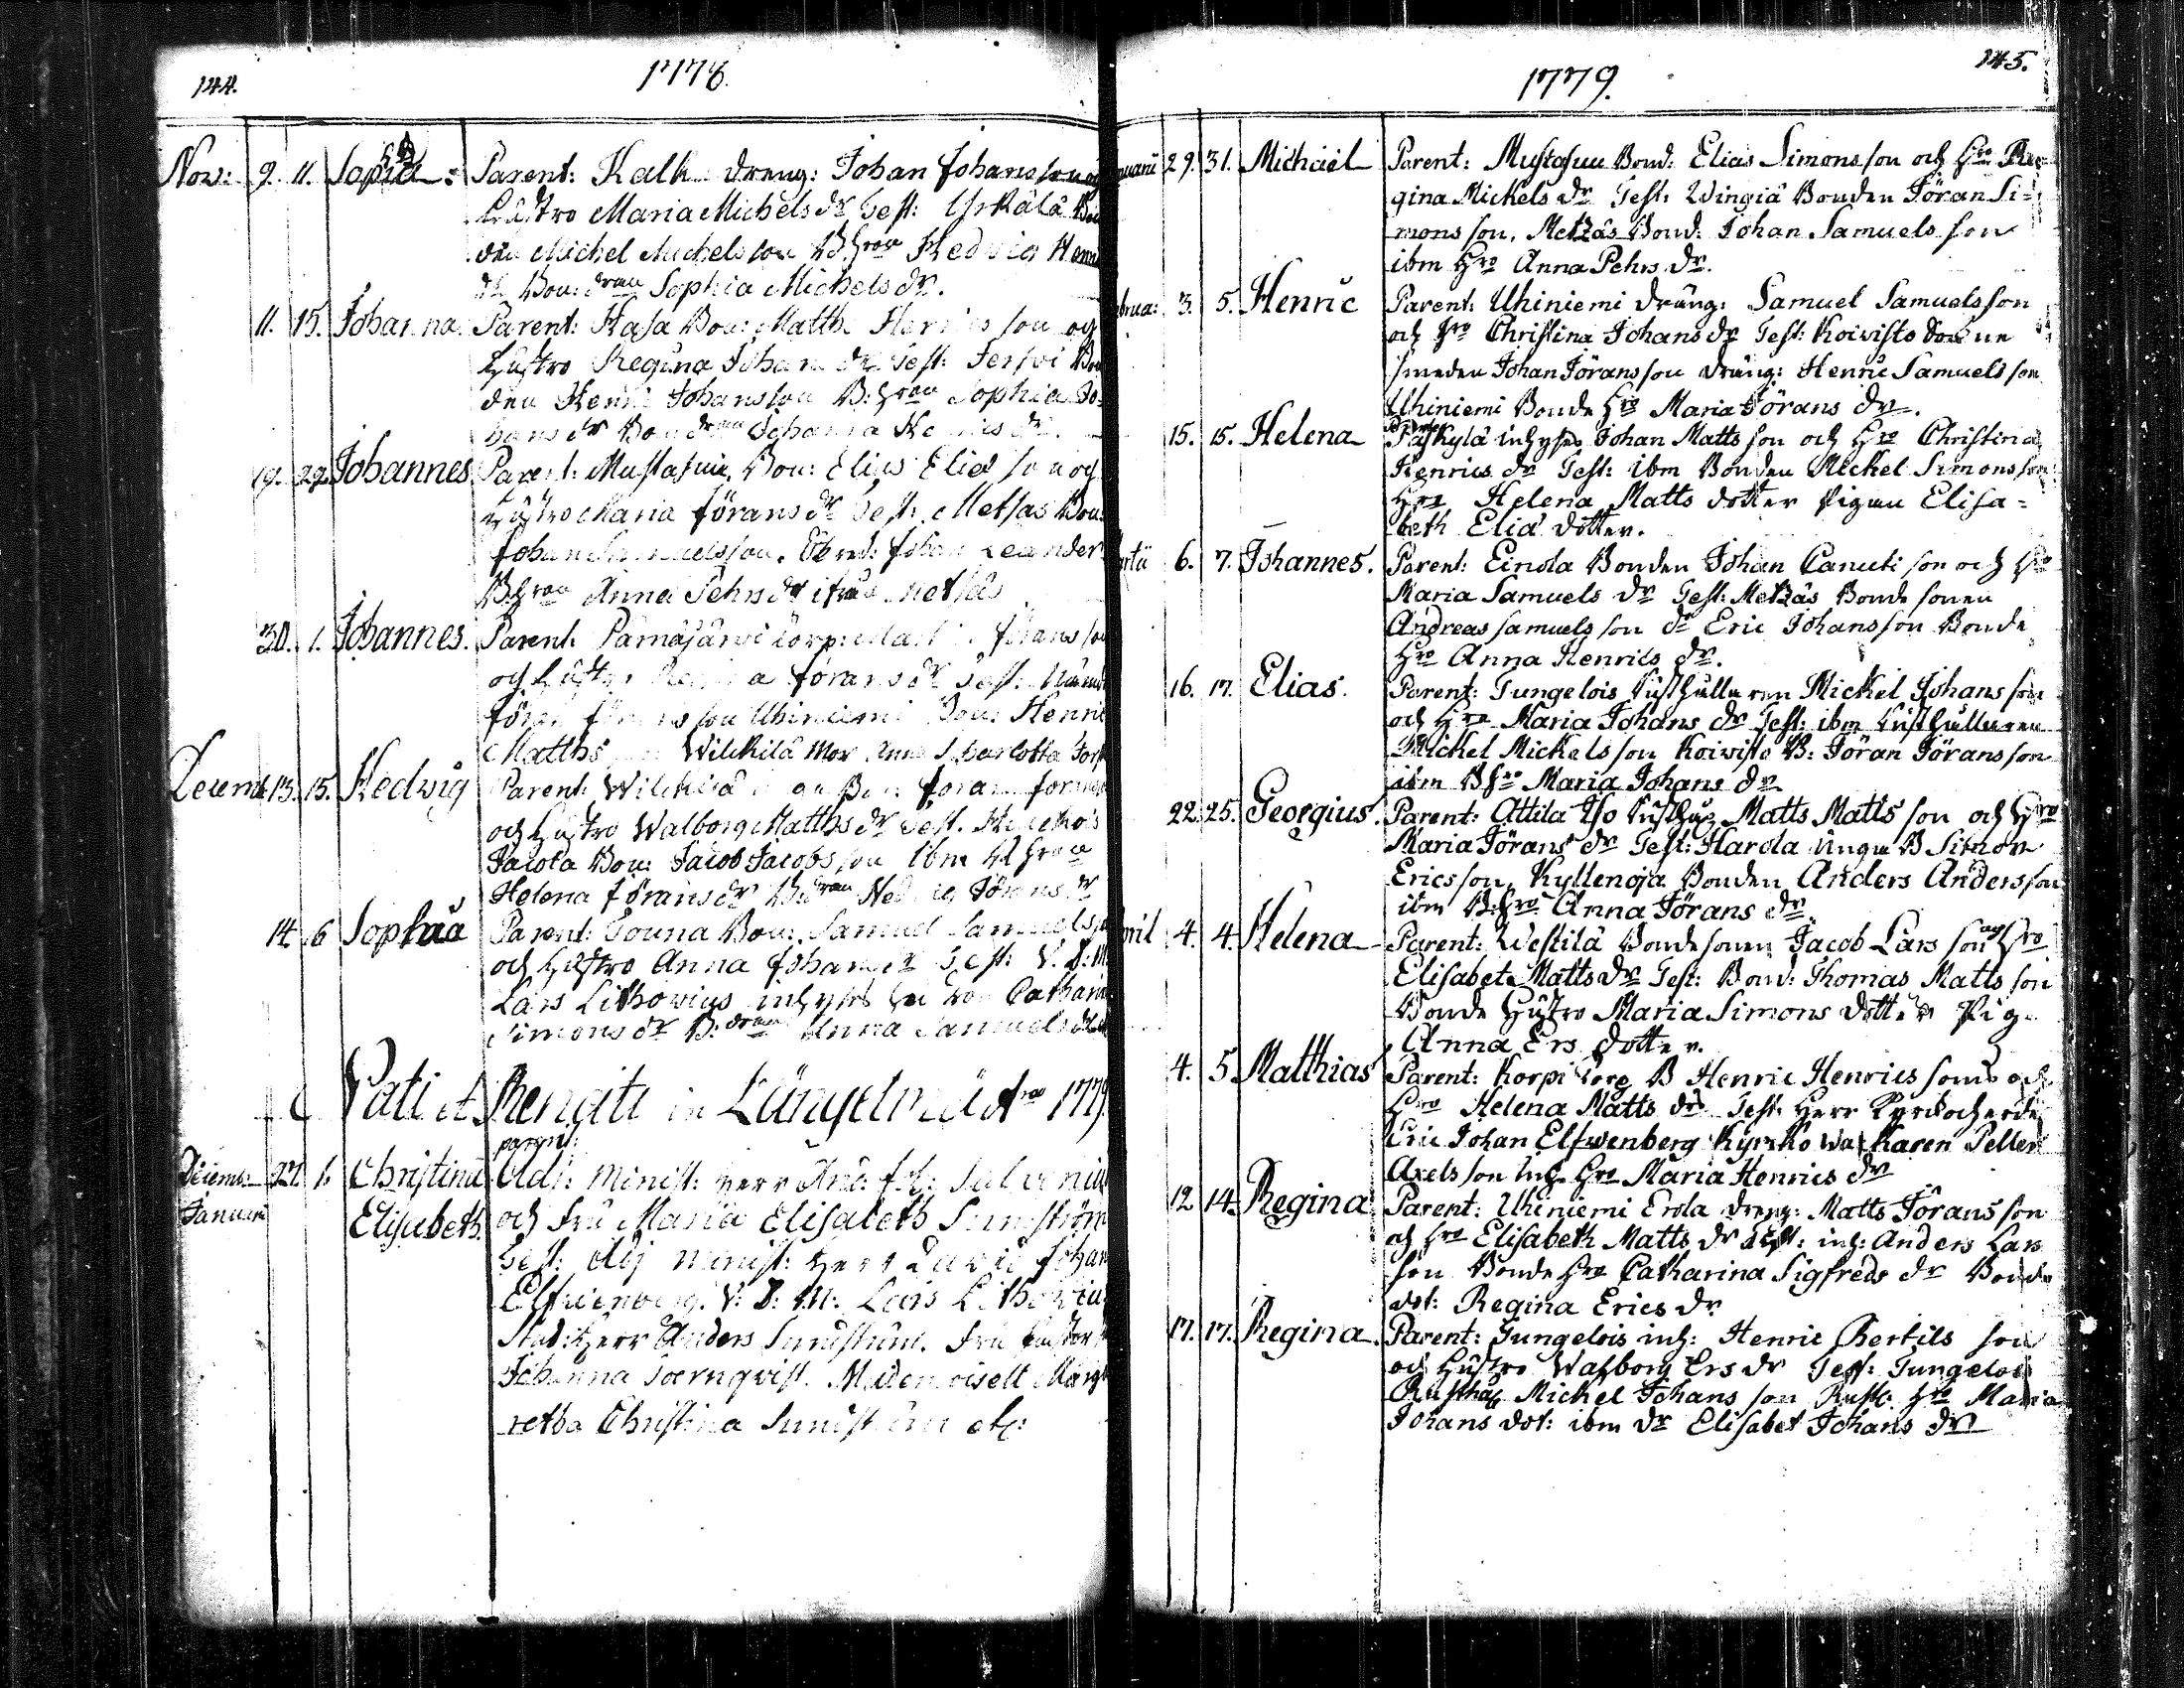 144.
1778.
Nov: 9. 11. Sophia: Parent: Kalk dreng: Johan Johansson och
hustro Maria Michels dr Test: Yrkälä Bon
den Michel Michelsson B.hron Hedvig Hen
dr Bon: dran Sophia Michels dr.
11. 15. Johanna. Parent: Hasa Bon: Matth. Henrics son och
hustro Regina Johans dr Test: Bon
den Henric Johansson B: hron Sophia Jo-
hans dr Bon dran Johanna Henrics dr.
19. 22. Johannes Parent: Mustasuu Bon: Elias Elias son och
hustro Maria Jörans dr Test: Metsas Bon:
Johan Samuelsson. Johan Leander
B.hron Anna Pehrs dr ifrån Metsäs
30. 1. Johannes. Parent: Pärnäjärvi torp: Matt Jörans son
och hustro Regina Jörans dr Test:
Jöran Jöransson Uhiniemi Bon: Henric
Matths Wilkilä Mor Anna Charlotta
Decemb: 13. 15. Hedvig Parent: Wilkilä Bon: Jöran Jöransson
och hustro Walborg Matths dr Test.
Jacola Bon: Jacob Jacobsson ibm B hron
Helena Jörans dr B: dran Hedvig Jörans dr
14. 16 Sophia Parent: Touna Bon: Samuel Samuelsson
och hustro Anna Johans dr Test: V. D: M.
Lars Lithovius inhyses hustron Catharina
Simons dr B: dran Anna Samuels dr
Nati et Renati in Längelmä Aro 1779.
parent:
Decemb: 27. 1. Christina Adj: Minist: Herr And: Joh: Salvenius
Januari Elisabeth. och Fru Maria Elisabeth Sundström
Test: Adj Minist: Herr David Johan
Elfwenberg. V: D: M: Lars Lithovius
Stud: Herr Anders Sundström. Fru
Johanna Toernqvist. Mademoisell Marga
retha Christina Sundström etc:
145.
1779.
Januarii 29. 31. Michael Parent: Mustasuu Bond: Elias Simonsson och Hro Re-
gina Mickels dr Test: Wingiä Bonden Jöran Si-
monsson, Metzäs Bond: Johan Samuelsson
ibm Hro Anna Pehrs dr.
Februa: 3. 5. Henric Parent: Uhiniemi dräng: Samuel Samuelsson
och Hro Christina Johans dr Test: Koivisto
smeden Johan Jöransson dräng: Henric Samuelsson
Uhiniemi Bonde Hro Maria Jörans dr.
15. 15. Helena Päskylä inhyses Johan Mattsson och Hro Christina
Henrics dr Test: ibm Bonden Mickel Simonsson
Hro Helena Matts dotter Pigan Elisa-
beth Elia dotter.
Martii 6. 7. Johannes. Parent: Eirola Bonden Johan Canuti son och Hro
Maria Samuels dr Test: Metzäs Bonde sonen
Andreas Samuelsson dr Eric Johansson Bonde
Hro Anna Henrics dr.
16. 17. Elias. Parent: Tungelois Rusthållaren Mickel Johansson
och Hro Maria Johans dr Test: ibm Rusthållaren
Mickel Mickelsson Koivisto B: Jöran Jöransson
ibm B Hro Maria Johans dr
22. 25. Georgius. Parent: Attila Iso Rusthug Matts Matts son och Hro
Maria Jörans dr Test: Harola Unga B Simon
Ericsson, Kyllenoja Bonden Anders Andersson
ibm B: Hro Anna Jörans dr
April 4. 4. Helena Parent: Westilä Bonde sonen Jacob Larsson och Hro
Elisabeta Matts dr Test: Bond: Thomas Mattsson
Bonde Hustro Maria Simons dotter Pig.
Anna Ers dotter.
4. 5. Matthias Parent: Korpi torp B Henric Henrics son och
Hro Helena Matts dr Test: Herr Kyrckoherde
Eric Johan Elfwenberg Kyrko wackaren Peller
Axelsson inh. Hro Maria Henrics dr
12 14. Regina Parent: Uhiniemi Erola dreng: Matts Jöransson
och Hro Elisabeth Matts dr Test: inh: Anders Lars
son Bonde Hro Catharina Sigfreds dr Bonde
dot: Regina Erics dr
17. 17. Regina. Parent: Tungelois inh: Henric Bertils son
och Hustro Walborg Ers dr Test: Tungelois
Rusthåll Michel Johans son Rusth. Hro Maria
Johans dot: ibm dr Elisabet Johans dr